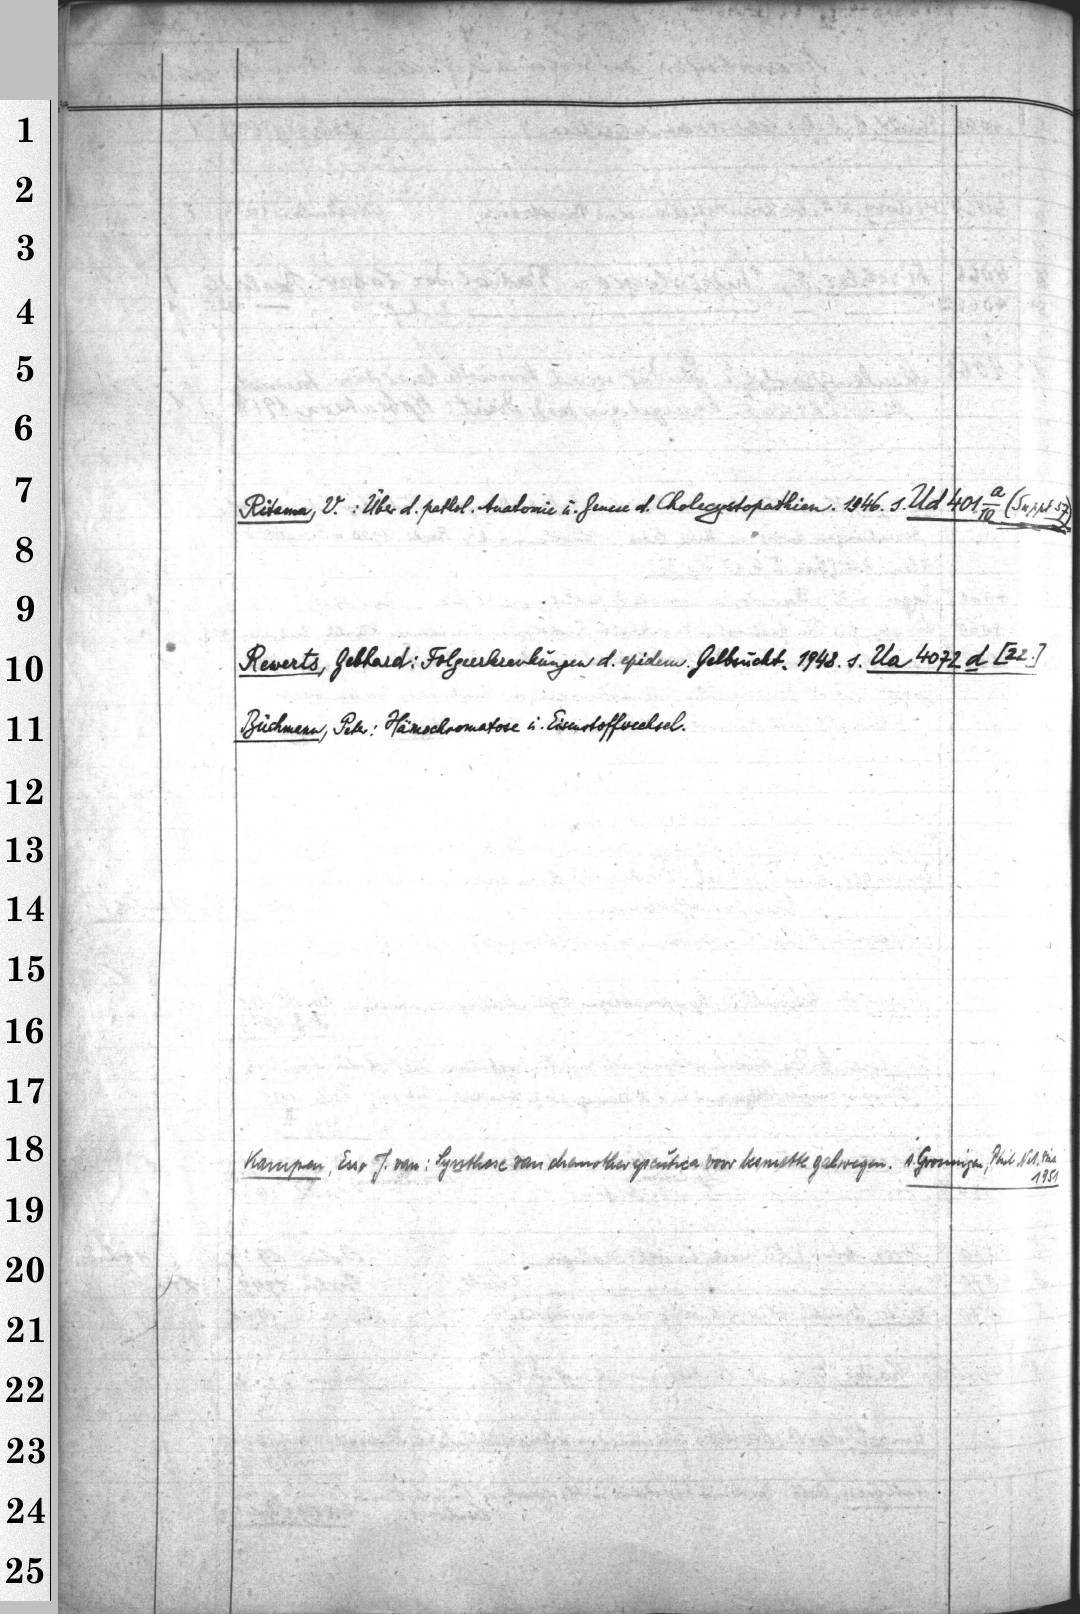 1
2
3
4
5
6
7
Ritama, V. : Über d. pathol. Anatomie u. Genese d. Cholecystopathien. 1946. s. Ud 401 a/10 (Suppl 57)
8
9
10
Rewerts, Gebhard: Folgeerkrankungen d. epidem. Gelbsucht. 1948. s. Ua 4072 d [22.]
11
Büchmann, Peter: Hämochromatose u. Eisenstoffwechsel.
12
13
14
15
16
17
18
Kampen, J. van: Synthese van chemotherapeutica voor galwegen. s. Groningen, Phil. 1951
19
20
21
22
23
24
25